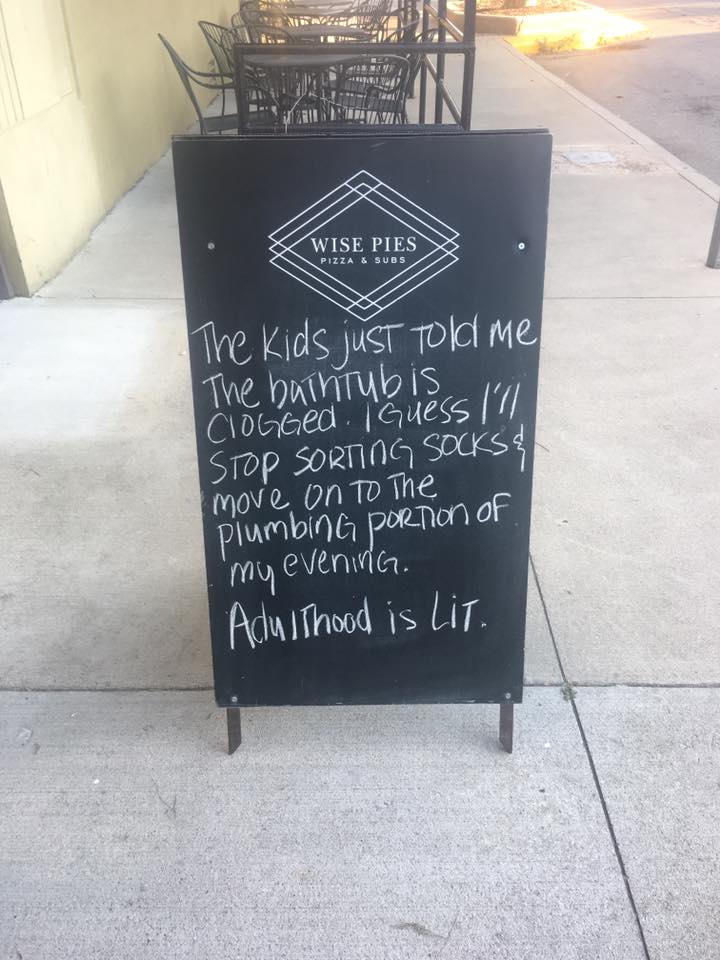 WISE PIES
PIZZA & SUBS
The Kids just Told Me
The bathtub is
clogged. I Guess I'll
STOP SORTING SOCKS &
move on to the
plumbing portion of
my evening.
Adulthood is Lit.